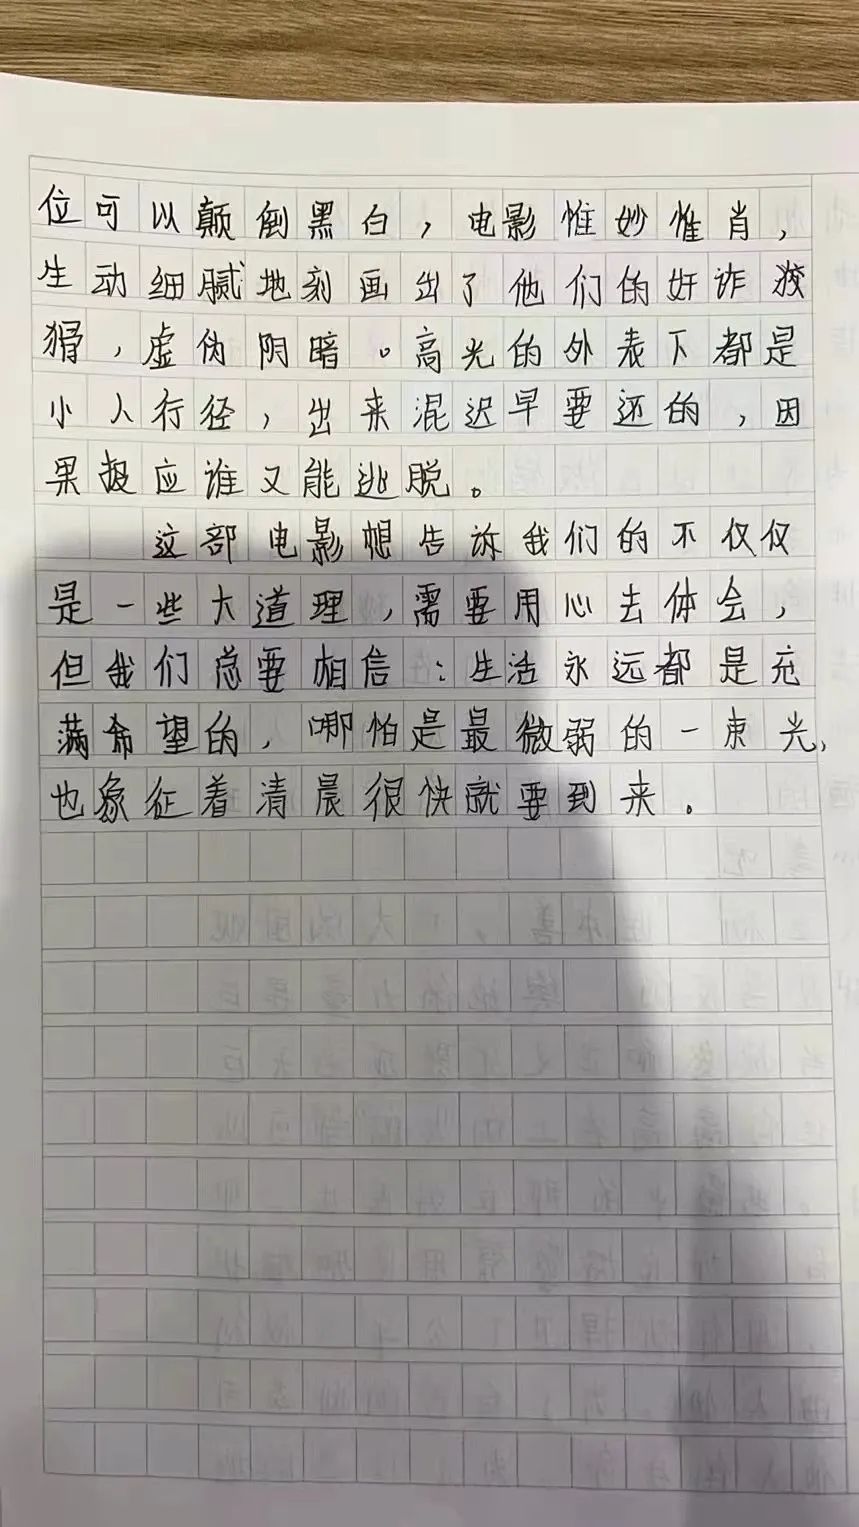 位可以颠倒黑白，电影惟妙惟肖，
生动细腻地刻画出了他们的奸诈狡
猾，虚伪阴暗。高光的外表下都是
小人行径，出来混迟早要还的，因
果报应谁又能逃脱。
这部电影想告诉我们的不仅仅
是一些大道理，需要用心去体会，
但我们总要相信：生活永远都是充
满希望的，哪怕是最微弱的一束光，
也象征着清晨很快就要到来。